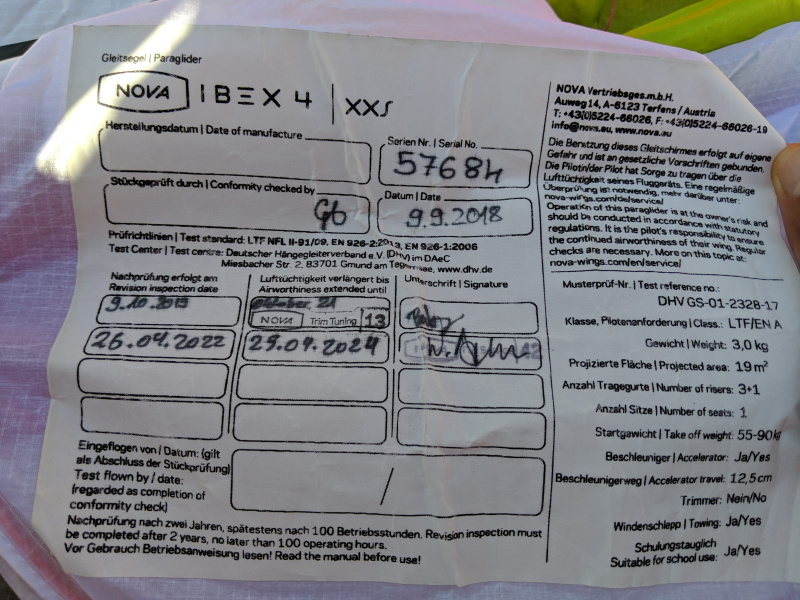 Gleitsegel | Paraglider
NOVA IBEX 4 XXS
Herstellungsdatum | Date of manufacture
Serien Nr. | Serial No.
57684
Stückgeprüft durch | Conformity checked by
Datum | Date
9.9.2018
Prüfrichtlinien | Test standard: LTF NFL II-91/09, EN 926-2:2013, EN 926-1:2006
Test Center | Test centre: Deutscher Hängegleiterverband e.V. (DHV) im DAeC
Miesbacher Str. 2, 83701 Gmund am Tegernsee, www.dhv.de
Nachprüfung erfolgt am
Revision inspection date
Lufttüchtigkeit verlängert bis
Airworthiness extended until
Unterschrift | Signature
9.10.2019
Oktober 21
NOVA Trim Tuning 13
26.04.2022
25.04.2024
Eingeflogen von / Datum: (gilt
als Abschluss der Stückprüfung)
Test flown by / date:
(regarded as completion of
conformity check)
/
Nachprüfung nach zwei Jahren, spätestens nach 100 Betriebsstunden. Revision inspection must
be completed after 2 years, no later than 100 operating hours.
Vor Gebrauch Betriebsanweisung lesen! Read the manual before use!
NOVA Vertriebsges.m.b.H.
Auweg 14, A-6123 Terfens / Austria
T: +43(0)5224-66026, F: +43(0)5224-66026-19
info@nova.eu, www.nova.eu
Die Benützung dieses Gleitschirmes erfolgt auf eigene
Gefahr und ist an gesetzliche Vorschriften gebunden.
Die Pilotin/der Pilot hat Sorge zu tragen über die
Lufttüchtigkeit seines Fluggeräts. Eine regelmäßige
Überprüfung ist notwendig, mehr darüber unter:
nova-wings.com/de/service/
Operation of this paraglider is at the owner's risk and
should be conducted in accordance with statutory
regulations. It is the pilot's responsibility to ensure
the continued airworthiness of their wing. Regular
checks are necessary. More on this topic at:
nova-wings.com/en/service/
Musterprüf-Nr. | Test reference no.:
DHV GS-01-2328-17
Klasse, Pilotenanforderung | Class.: LTF/EN A
Gewicht | Weight: 3,0 kg
Projizierte Fläche | Projected area: 19 m²
Anzahl Tragegurte | Number of risers: 3+1
Anzahl Sitze | Number of seats: 1
Startgewicht | Take off weight: 55-90kg
Beschleuniger | Accelerator: Ja/Yes
Beschleunigerweg | Accelerator travel: 12,5 cm
Trimmer: Nein/No
Windenschlepp | Towing: Ja/Yes
Schulungstauglich
Suitable for school use: Ja/Yes